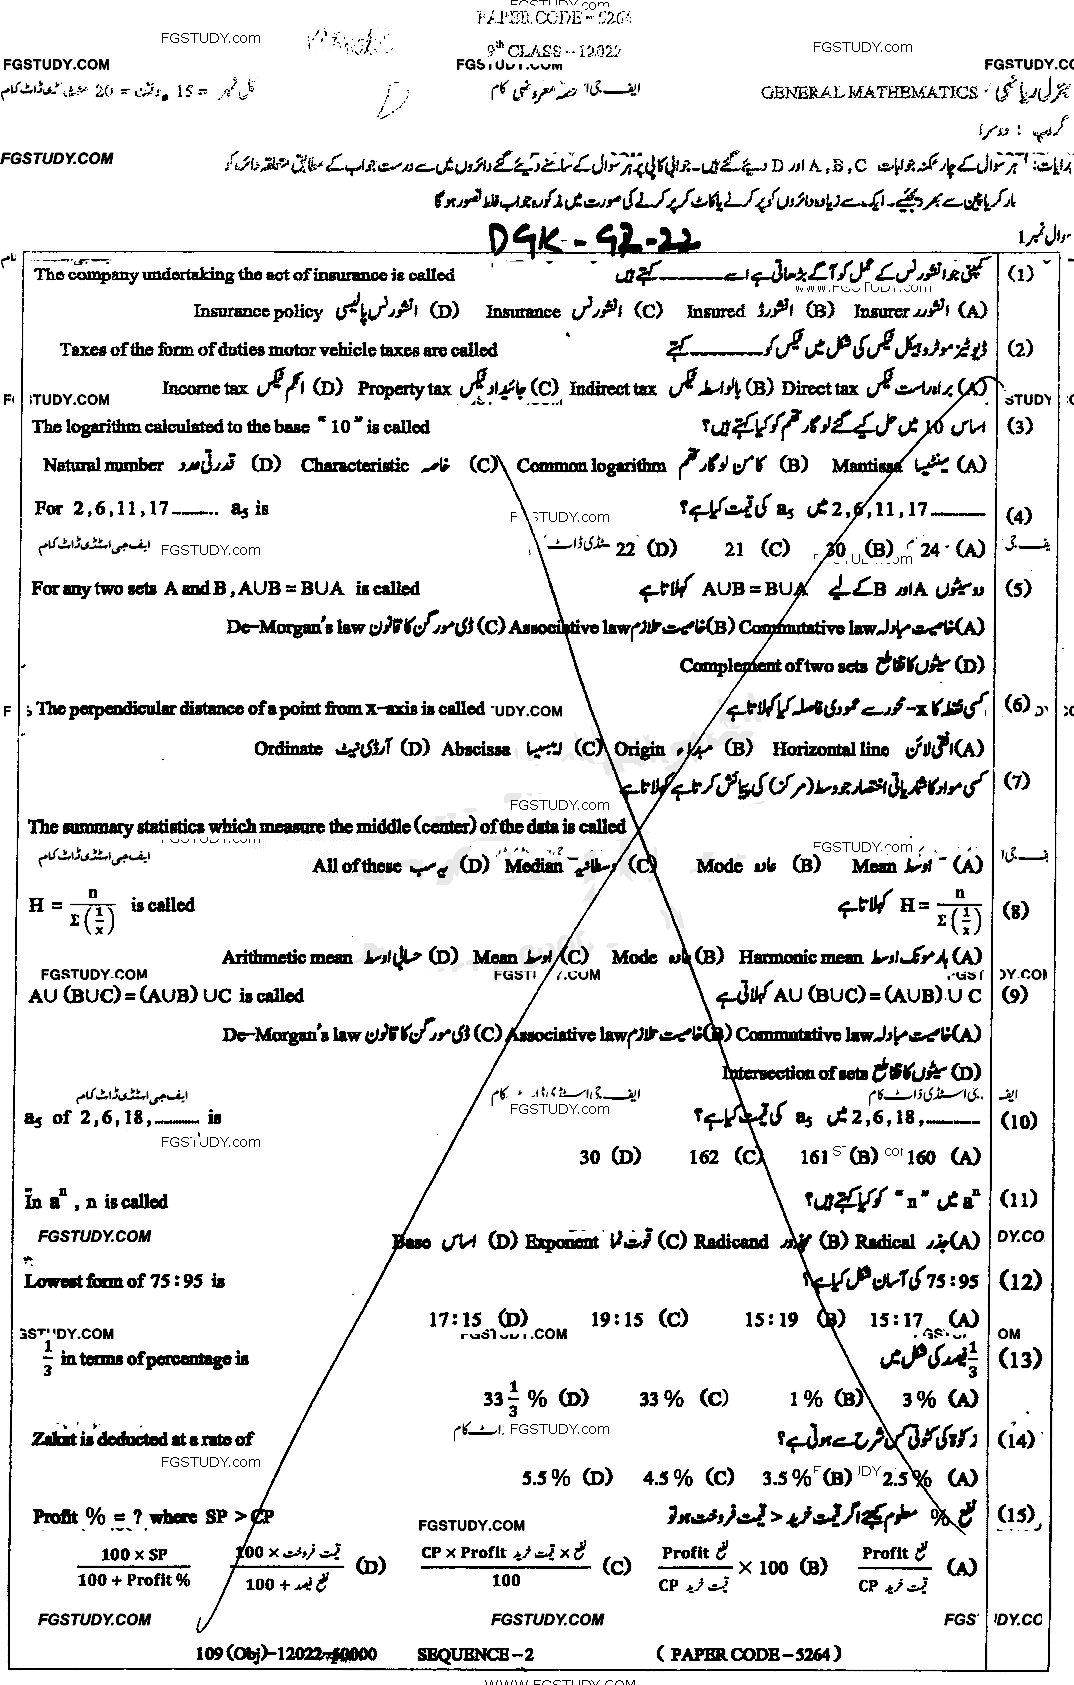 FGSTUDY.com
PAPER CODE – 5264
FGSTUDY.com FGSTUDY.com
9th CLASS – 12022
FGSTUDY.COM FGSTUDY.COM
GENERAL MATHEMATICS - جنرل ریاضی حصہ معروضی
کل نمبر = 15 وقت = 20 منٹ
گروپ : دوسرا
FGSTUDY.COM
ہر سوال کے چار ممکنہ جوابات A , B , C اور D دیئے گئے ہیں۔ جوابی کاپی پر ہر سوال کے سامنے دیئے گئے دائروں میں سے درست جواب کے مطابق متعلقہ دائرہ کو
مارکر یا پین سے بھر دیجئے۔ ایک سے زیادہ دائروں کو پُر کرنے یا کاٹ کر پُر کرنے کی صورت میں مذکورہ جواب غلط تصور ہو گا
DGK-G2-22
سوال نمبر 1
(1) کمپنی جو انشورنس کے عمل کو آگے بڑھاتی ہے اسے ______ کہتے ہیں The company undertaking the act of insurance is called
www.FGSTUDY.com
(A) انشورر Insurer (B) انشورڈ Insured (C) انشورنس Insurance (D) انشورنس پالیسی Insurance policy
(2) ڈیوٹیز موٹر وہیکل ٹیکس کی شکل میں ٹیکس کو ______ کہتے Taxes of the form of duties motor vehicle taxes are called
(A) براہ راست ٹیکس Direct tax (B) بالواسطہ ٹیکس Indirect tax (C) جائیداد ٹیکس Property tax (D) انکم ٹیکس Income tax
(3) اساس 10 میں حل کیے گئے لوگارتھم کو کیا کہتے ہیں؟ The logarithm calculated to the base " 10 " is called
(A) مینٹیسا Mantissa (B) کامن لوگارتھم Common logarithm (C) خاصہ Characteristic (D) قدرتی عدد Natural number
(4) 2 , 6 , 11 , 17 ______ میں a5 کی قیمت کیا ہے؟ For 2 , 6 , 11 , 17 ______ a5 is
FGSTUDY.com
(A) 24 (B) 30 (C) 21 (D) 22
(5) دو سیٹوں A اور B کے لیے AUB = BUA کہلاتا ہے For any two sets A and B , AUB = BUA is called
(A) خاصیت مبادلہ Commutative law (B) خاصیت تلازم Associative law (C) ڈی مورگن کا قانون De–Morgan's law
(D) سیٹوں کا تقاطع Complement of two sets
(6) کسی نقطہ کا x- محور سے عمودی فاصلہ کیا کہلاتا ہے The perpendicular distance of a point from x–axis is called
(A) افقی لائن Horizontal line (B) مبداء Origin (C) ایبسیسا Abscissa (D) آرڈی نیٹ Ordinate
(7) کسی مواد کا شماریاتی اختصار جو وسط (مرکز) کی پیمائش کرتا ہے کہلاتا ہے
FGSTUDY.com
The summary statistics which measure the middle (center) of the data is called
(A) اوسط Mean (B) عادہ Mode (C) وسطانیہ Median (D) یہ سب All of these
(8) H = n / Σ(1/x) کہلاتا ہے H = n / Σ(1/x) is called
(A) ہارمونک اوسط Harmonic mean (B) عادہ Mode (C) اوسط Mean (D) حسابی اوسط Arithmetic mean
FGSTUDY.COM
(9) AU (BUC) = (AUB) U C کہلاتی ہے AU (BUC) = (AUB) UC is called
(A) خاصیت مبادلہ Commutative law (B) خاصیت تلازم Associative law (C) ڈی مورگن کا قانون De–Morgan's law
(D) سیٹوں کا تقاطع Intersection of sets
(10) 2 , 6 , 18 , ______ میں a5 کی قیمت کیا ہے؟ a5 of 2 , 6 , 18 , ______ is
FGSTUDY.com
(A) 160 (B) 161 (C) 162 (D) 30
(11) aⁿ میں " n " کو کیا کہتے ہیں؟ In aⁿ , n is called
FGSTUDY.COM
(A) جذر Radical (B) مجذور Radicand (C) قوت نما Exponent (D) اساس Base
(12) 75 : 95 کی آسان شکل کیا ہے؟ Lowest form of 75 : 95 is
(A) 15 : 17 (B) 15 : 19 (C) 19 : 15 (D) 17 : 15
(13) 1/3 فیصد کی شکل میں 1/3 in terms of percentage is
(A) 3 % (B) 1 % (C) 33 % (D) 33 1/3 %
(14) زکوٰۃ کی کٹوتی کس شرح سے ہوتی ہے؟ Zakat is deducted at a rate of
FGSTUDY.com
(A) 2.5 % (B) 3.5 % (C) 4.5 % (D) 5.5 %
(15) نفع % معلوم کیجئے اگر قیمت خرید < قیمت فروخت ہو تو Profit % = ? where SP > CP
FGSTUDY.COM
(A) نفع Profit / قیمت خرید CP (B) نفع Profit / قیمت خرید CP × 100 (C) نفع × قیمت خرید CP × Profit / 100 (D) قیمت فروخت × 100 / نفع فیصد + 100 100 × SP / 100 + Profit %
FGSTUDY.COM FGSTUDY.COM
109 (Obj)–12022–40000 SEQUENCE – 2 ( PAPER CODE – 5264 )
WWW.FGSTUDY.COM